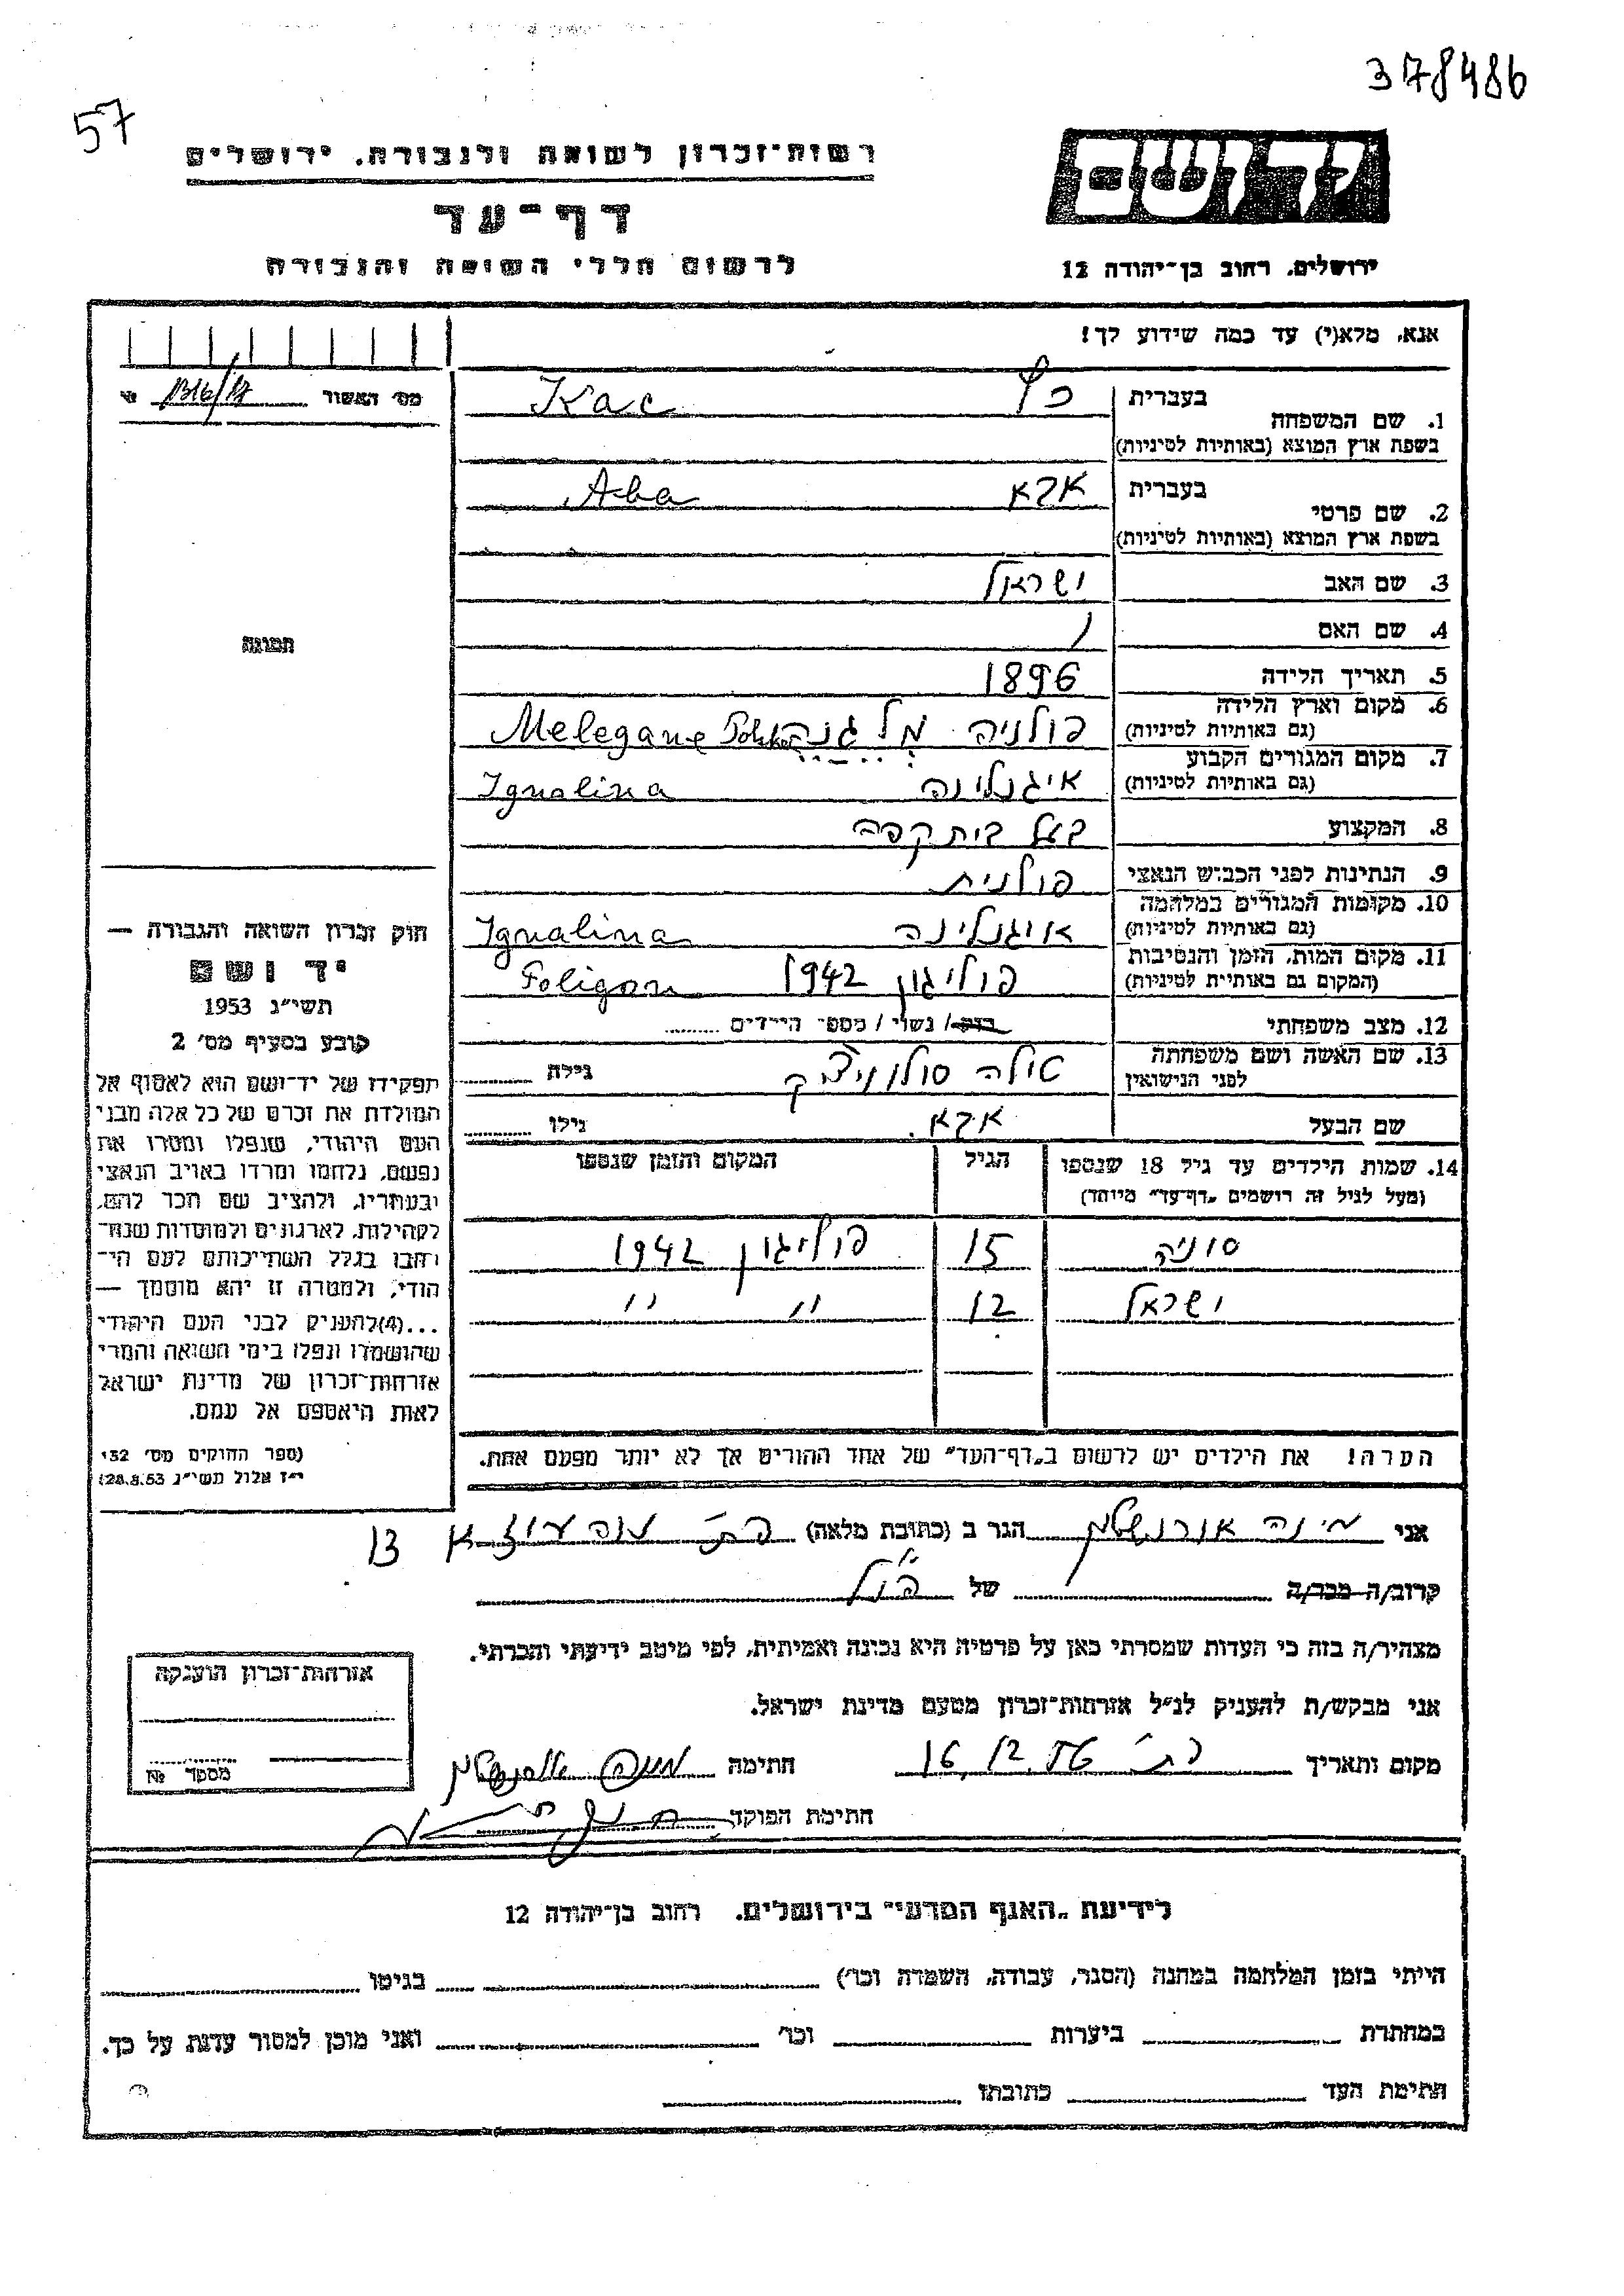 378486
57
יד ושם
רשות-זכרון לשואה ולגבורה. ירושלים
דף-עד
לרשום חללי השואה והגבורה
ירושלים, רחוב בן-יהודה 12
אנא, מלא(י) עד כמה שידוע לך!
מס' האשור
1. שם המשפחה
בעברית כץ Kac
בשפת ארץ המוצא (באותיות לטיניות)
2. שם פרטי
בעברית אבא Aba
בשפת ארץ המוצא (באותיות לטיניות)
3. שם האב ישראל
4. שם האם
5. תאריך הלידה 1896
6. מקום וארץ הלידה פולניה מלגנה Melegane
(גם באותיות לטיניות)
7. מקום המגורים הקבוע איגנלינה Ignalina
(גם באותיות לטיניות)
8. המקצוע בעל בית קפה
9. הנתינות לפני הכבוש הנאצי פולנית
10. מקומות המגורים במלחמה איגנלינה Ignalina
(גם באותיות לטיניות)
11. מקום המות, הזמן והנסיבות פוליגון 1942 Poligon
(המקום גם באותיות לטיניות)
12. מצב משפחתי רווק / נשוי / מספר הילדים
13. שם האשה ושם משפחתה
לפני הנישואין גילה
שם הבעל אבא. גילו
14. שמות הילדים עד גיל 18 שנספו הגיל המקום והזמן שנספו
(מעל לגיל זה רושמים "דף-עד" מיוחד)
סוניה 15 פוליגון 1942
ישראל 12 " "
הערה! את הילדים יש לרשום ב"דף-העד" של אחד ההורים אך לא יותר מפעם אחת.
תמונה
חוק זכרון השואה והגבורה —
יד ושם
תשי"ג 1953
קובע בסעיף מס' 2
תפקידו של יד-ושם הוא לאסוף אל
המולדת את זכרם של כל אלה מבני
העם היהודי, שנפלו ומסרו את
נפשם, נלחמו ומרדו באויב הנאצי
ובעוזריו, ולהציב שם וזכר להם,
לקהילות, לארגונים ולמוסדות שנח-
רבו בגלל השתייכותם לעם הי-
הודי, ולמטרה זו יהא מוסמך —
...(4)להעניק לבני העם היהודי
שהושמדו ונפלו בימי השואה והמרי
אזרחות-זכרון של מדינת ישראל
לאות היאספם אל עמם.
(ספר החוקים מס' 132
י"ז אלול תשי"ג 28.8.53)
אני מינה הגר ב (כתובת מלאה) 13
קרוב/ה מכר/ה של
מצהיר/ה בזה כי העדות שמסרתי כאן על פרטיה היא נכונה ואמיתית, לפי מיטב ידיעתי והכרתי.
אני מבקש/ת להעניק לנ"ל אזרחות-זכרון מטעם מדינת ישראל.
מקום ותאריך 16.12.56 חתימה
חתימת הפוקד
אזרחות-זכרון הוענקה
מספר №
לידיעת "האגף המדעי" בירושלים. רחוב בן-יהודה 12
הייתי בזמן המלחמה במחנה (הסגר, עבודה, השמדה וכו') בגיטו
במחתרת ביערות וכו' ואני מוכן למסור עדות על כך.
חתימת העד כתובתו